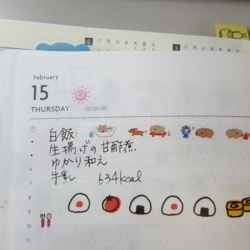 February
15
THURSDAY
白飯
生揚げの甘酢煮
ゆかり和え
牛乳 634kcal